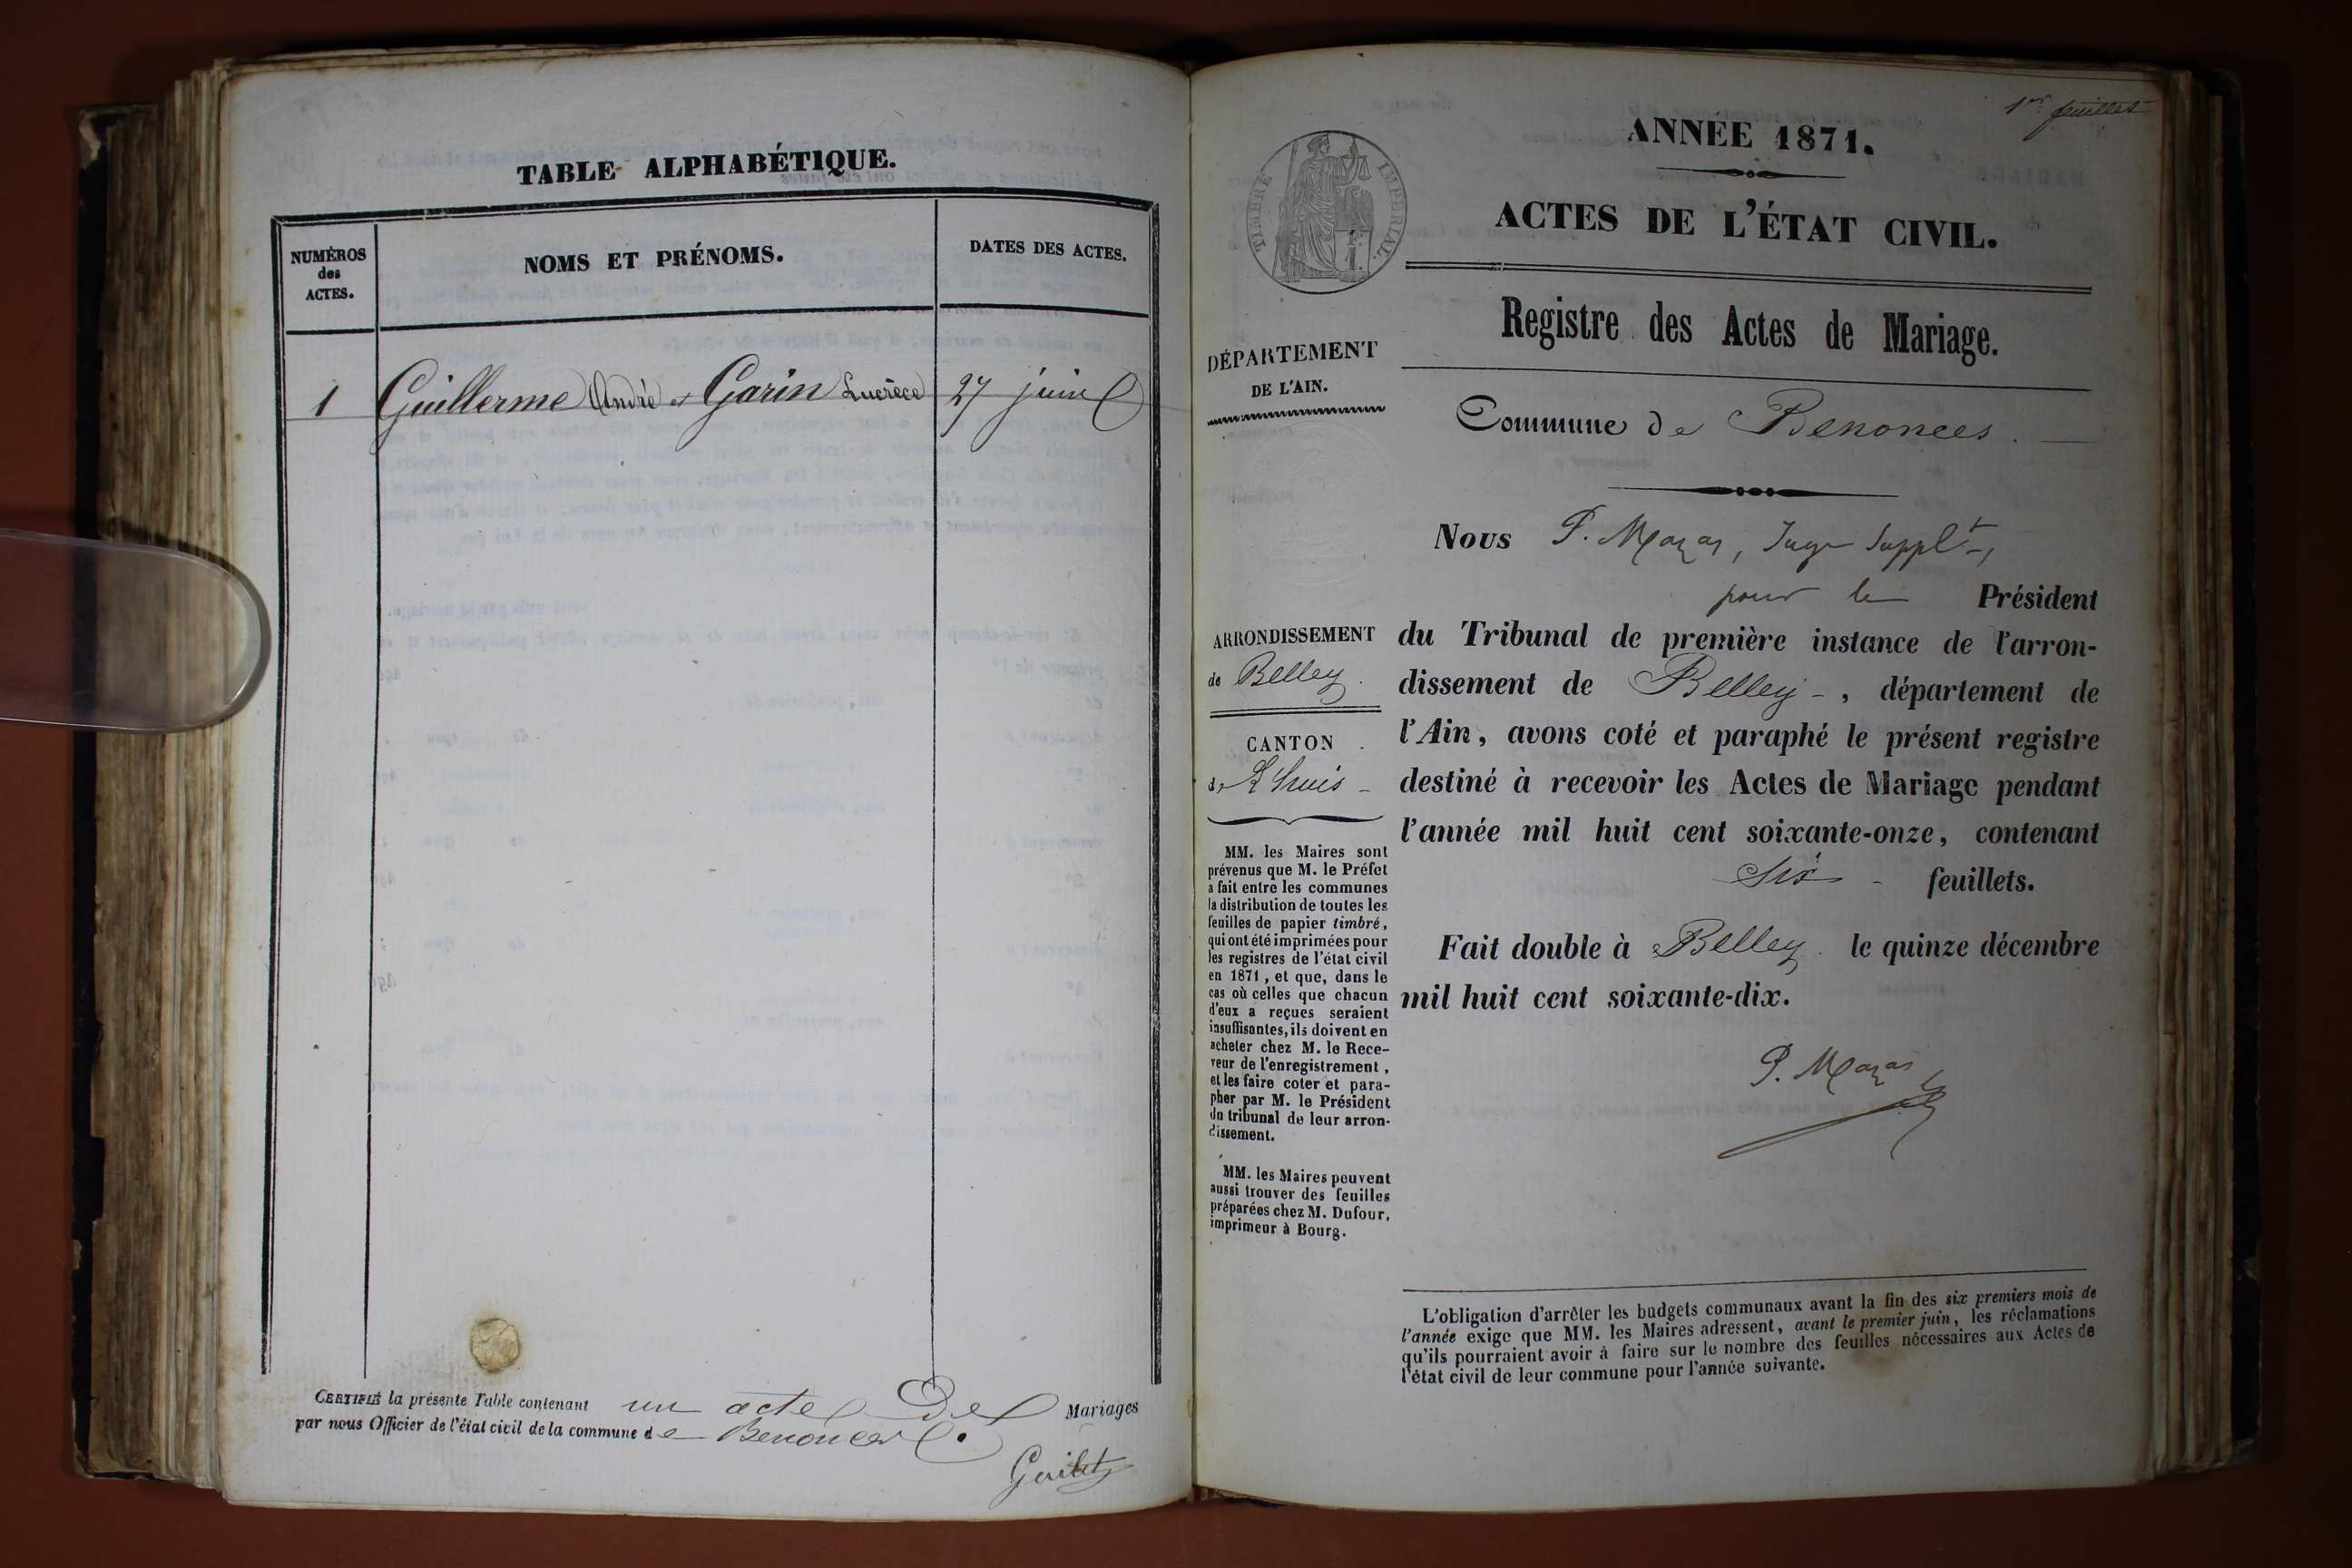 TABLE ALPHABÉTIQUE.
NUMÉROS
des
ACTES.
NOMS ET PRÉNOMS.
DATES DES ACTES.
1 Guillerme André et Garin Lucrèce 27 juin
CERTIFIÉ la présente Table contenant un acte De Mariages
par nous Officier de l'état civil de la commune de Benonces.
1er feuillet
ANNÉE 1871.
ACTES DE L'ÉTAT CIVIL.
TIMBRE IMPÉRIAL.
Registre des Actes de Mariage.
DÉPARTEMENT
DE L'AIN.
Commune de Benonces.
Nous P. Mazas, Juge Supplt,
pour le Président
ARRONDISSEMENT
de Belley.
CANTON
de Lhuis
du Tribunal de première instance de l'arron-
dissement de Belley, département de
l'Ain, avons coté et paraphé le présent registre
destiné à recevoir les Actes de Mariage pendant
l'année mil huit cent soixante-onze, contenant
Six feuillets.
Fait double à Belley le quinze décembre
mil huit cent soixante-dix.
P. Mazas
MM. les Maires sont
prévenus que M. le Préfet
a fait entre les communes
la distribution de toutes les
feuilles de papier timbré,
qui ont été imprimées pour
les registres de l'état civil
en 1871, et que, dans le
cas où celles que chacun
d'eux a reçues seraient
insuffisantes, ils doivent en
acheter chez M. le Rece-
veur de l'enregistrement,
et les faire coter et para-
pher par M. le Président
du tribunal de leur arron-
dissement.
MM. les Maires peuvent
aussi trouver des feuilles
préparées chez M. Dufour,
imprimeur à Bourg.
L'obligation d'arrêter les budgets communaux avant la fin des six premiers mois de
l'année exige que MM. les Maires adressent, avant le premier juin, les réclamations
qu'ils pourraient avoir à faire sur le nombre des feuilles nécessaires aux Actes de
l'état civil de leur commune pour l'année suivante.